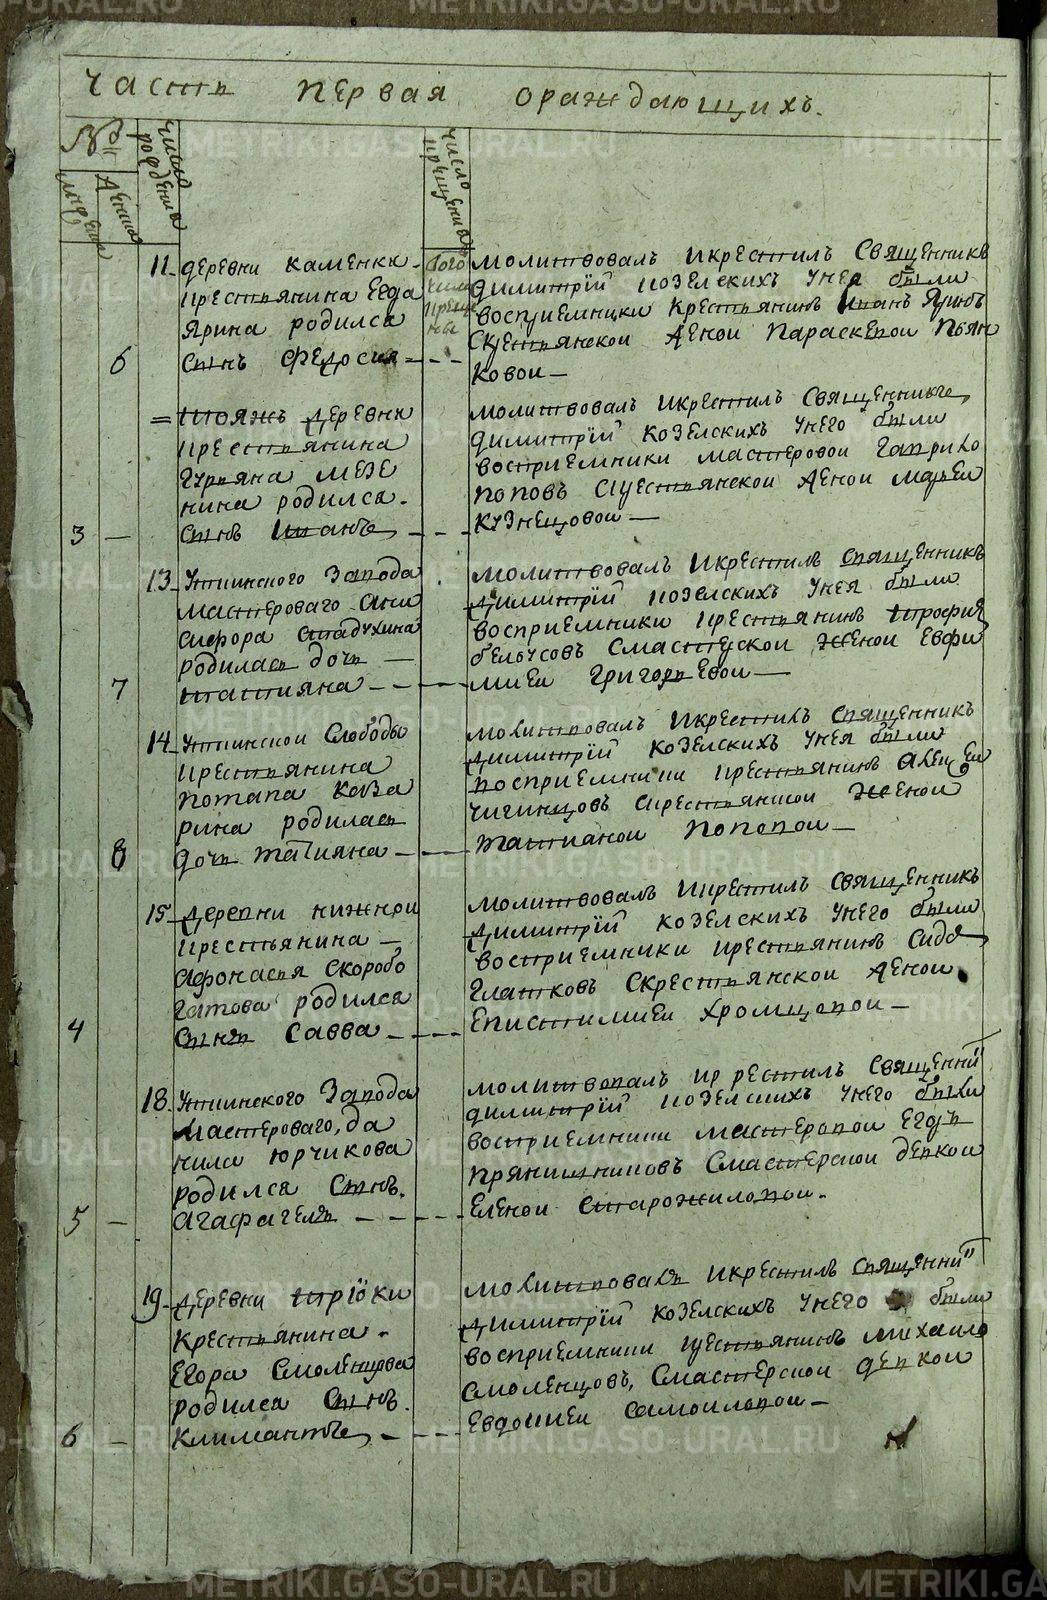 часть первая ораждающихъ.
№
мужеска
женска
число рождения
число крещения
11. деревни каменки
крестьянина
Ярина родился
6
того числа крещены
молитвовалъ икрестилъ Священникъ
димитрїй козелскихъ унея были
восприемники крестьянинъ Иванъ Яринъ
Скрестьянской женои параскевои Пьян
ковои —
= тояжъ деревни
крестьянина
Гурьяна мезе
нина родился.
3 — сынъ Иванъ
молитвовалъ икрестилъ Священникъ
димитрїй козелскихъ унего были
восприемники мастеровои гаврило
поповъ женои марьеи
кузнецовои —
13. Уткинского завода
мастероваго
родилась дочь —
7 татияна
молитвовалъ икрестилъ священникъ
димитрїй козелскихъ унея были
восприемники крестьянинъ трофим
женои Евфи
миеи григорьевои —
14. Уткинской Слободы
крестьянина
потапа Каза
рина родилась
8 дочь татияна —
молитвовалъ икрестилъ священникъ
димитрїй козелскихъ унея были
восприемники крестьянинъ алексеи
чигинцовъ скрестьянскои женои
татианои поповои —
15. деревни нижнои
крестьянина —
афонасея скоробо
гатова родился
4 сынъ Савва —
молитвовалъ икрестилъ священникъ
димитрїй козелскихъ унего были
восприемники крестьянинъ
глатковъ Скрестьянскои женои
епистимиеи хромцовои —
18. Уткинского завода
мастероваго, да
нила юрчикова
родился Сынъ.
5 — агафагелъ
молитвовалъ икрестилъ Священни"
димитрїй козелскихъ унего были
восприемники мастеровои Егоръ
прянишниковъ Смастерскои девкои
Еленои старожиловои.
19. деревни трїоки
Крестьянина.
Егора Смоленцова
родился Сынъ.
6 — климантъ
молитвовалъ икрестилъ священни"
димитрїй козелскихъ унего были
восприемники крестьянинъ михаило
смоленцовъ, Смастерскои девкои
Евдокиеи самоиловои —